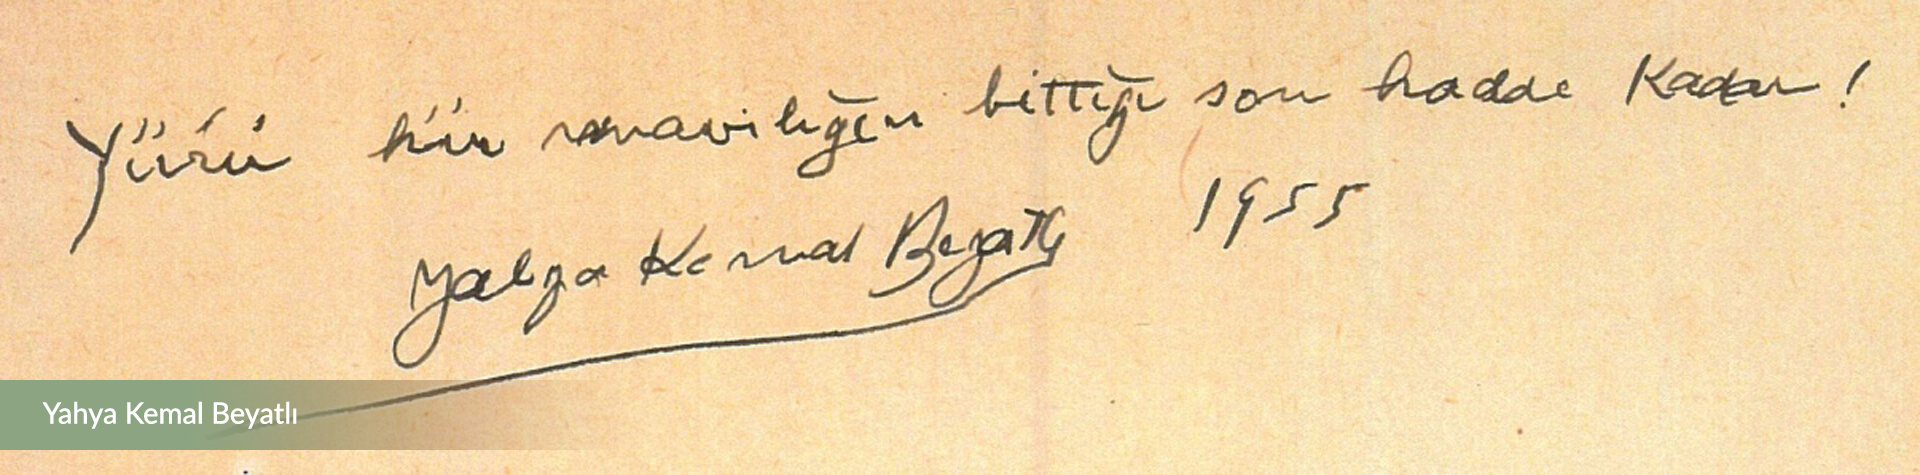 Yürü hür maviliğin bittiği son hadde kadar!
Yahya Kemal Beyatlı 1955
Yahya Kemal Beyatlı